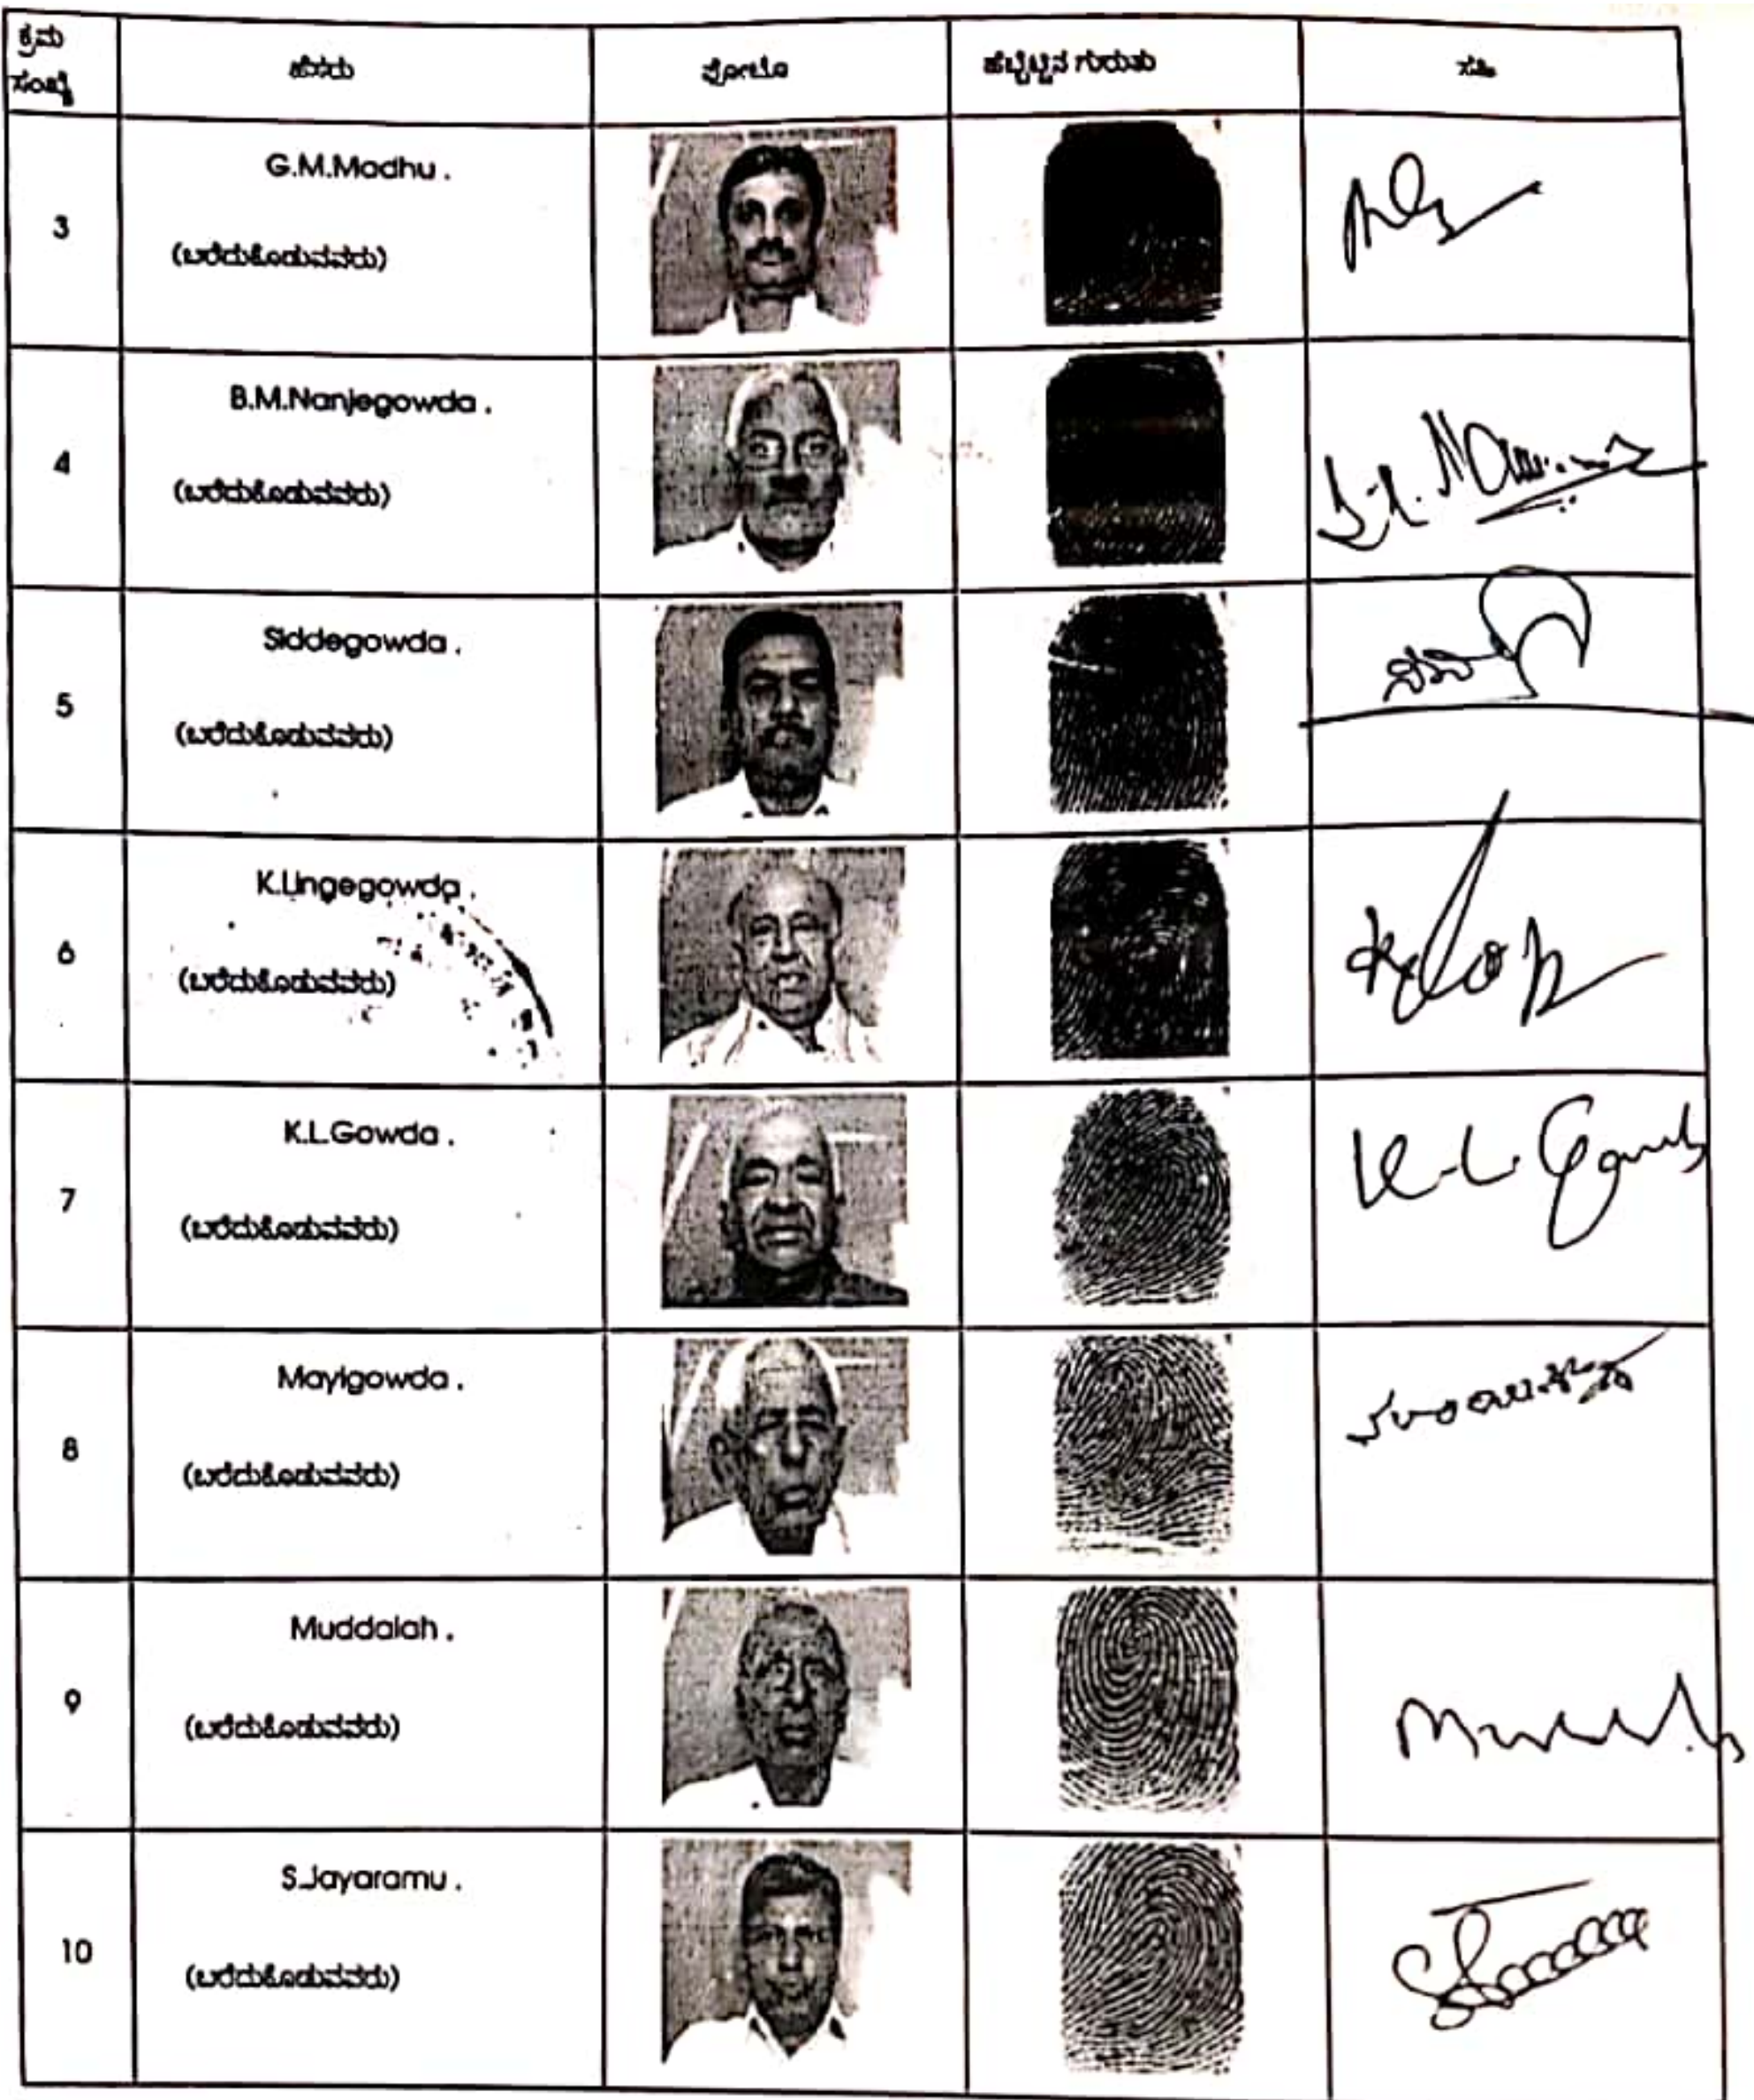 ಕ್ರಮ ಸಂಖ್ಯೆ ಹೆಸರು ಫೋಟೊ ಹೆಬ್ಬೆಟ್ಟಿನ ಗುರುತು ಸಹಿ
3 G.M.Madhu .
(ಬರೆದುಕೊಡುವವರು)
4 B.M.Nanjegowda .
(ಬರೆದುಕೊಡುವವರು)
5 Siddegowda .
(ಬರೆದುಕೊಡುವವರು)
6 K.Lingegowda .
(ಬರೆದುಕೊಡುವವರು)
7 K.L.Gowda .
(ಬರೆದುಕೊಡುವವರು)
K.L. Gowda
8 Mayigowda .
(ಬರೆದುಕೊಡುವವರು)
9 Muddaiah .
(ಬರೆದುಕೊಡುವವರು)
10 S.Jayaramu .
(ಬರೆದುಕೊಡುವವರು)